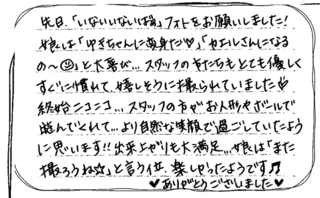 先日、「いないいないばぁ」フォトをお願いしました！
娘は「ゆきちゃんに変身だ♡」「やおしさんになる
の〜☺」と大喜び…スタッフの方たちもとても優しく
すぐに慣れて、嬉しそうに撮られていました♡
終始ニコニコ…スタッフの方がお人形やボールで
遊んでくれて…より自然な笑顔で過ごしていたよう
に思います!!出来上がりも大満足…娘は「また
撮ろうね☆」と言う位、楽しかったようです♬
♥ありがとうございました♥